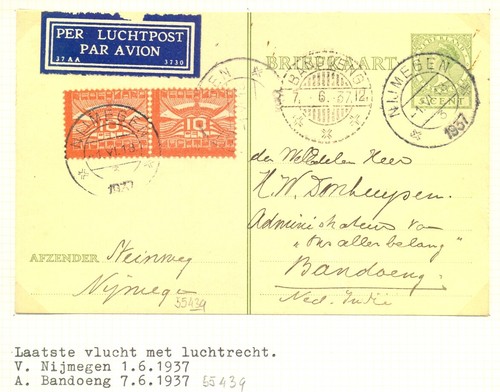 PER LUCHTPOST
PAR AVION
37 AA 3730
BRIEFKAART
NIJMEGEN
1937
BANDOENG
7. 6. 37.12
NIJMEGEN
1937
10
CENT
10
CENT
CENT
den Weledelen Heer
H.W. Donhuysen.
Administrateur van
"Ons aller belang"
Bandoeng.
Ned. Indië
AFZENDER Steinweg
Nijmegen
55439
Laatste vlucht met luchtrecht.
V. Nijmegen 1.6.1937
A. Bandoeng 7.6.1937 55439